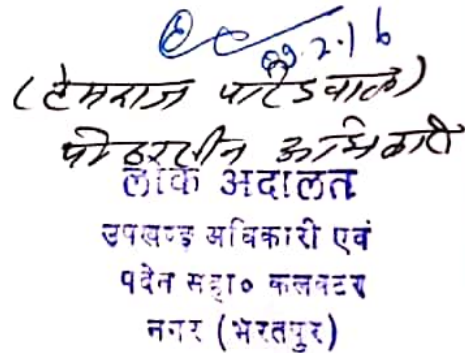 09.2.16
(हेमराज पाटिडवाल)
पीठासीन अधिकारी
लोक अदालत
उपखण्ड अधिकारी एवं
पदेन सहा० कलक्टर
नगर (भरतपुर)